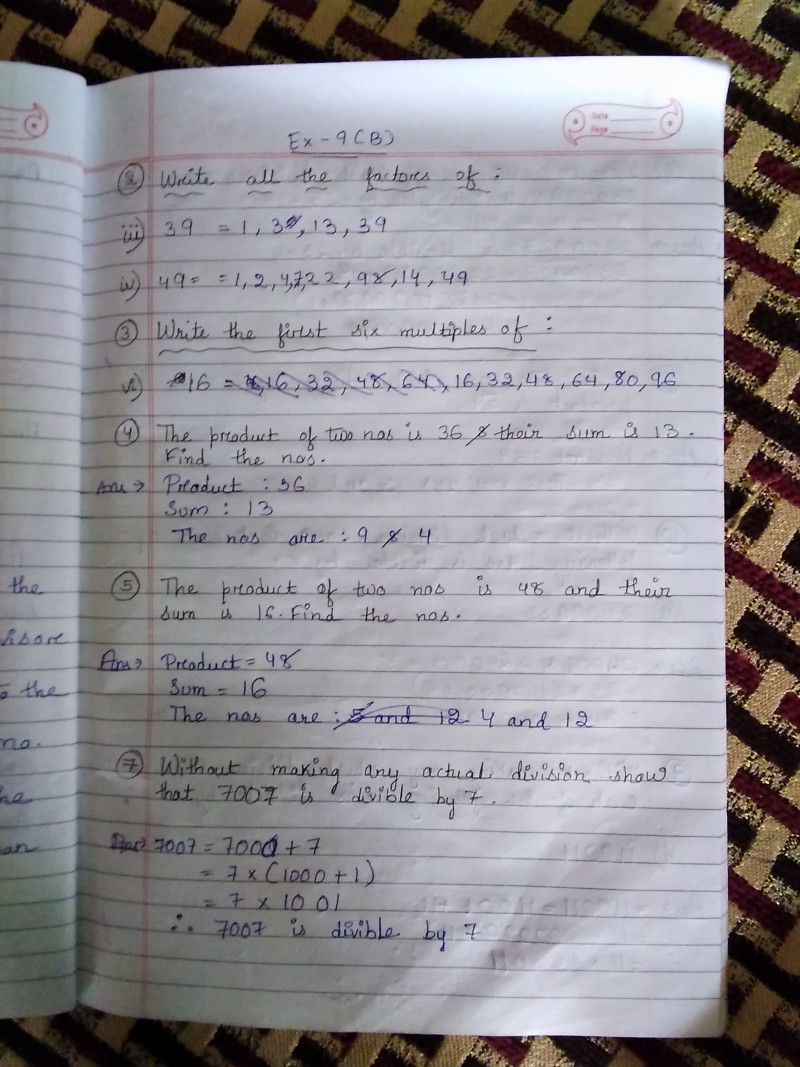 Date
Page
Ex-9(B)
② Write all the factors of :
iii) 39 = 1, 3, 13, 39
iv) 49= = 1, 2, 4,7,22, 98, 14, 49
③ Write the first six multiples of :
16 = 16, 32, 48, 64, 16, 32, 48, 64, 80, 96
④ The product of two nos is 36 & their sum is 13.
Find the nos.
Ans → Product : 36
Sum : 13
The nos are : 9 & 4
⑤ The product of two nos is 48 and their
sum is 16. Find the nos.
Ans → Product = 48
Sum = 16
The nos are : 5 and 12 4 and 12
⑦ Without making any actual division show
that 7007 is divible by 7.
Ans → 7007 = 7000 + 7
= 7 × (1000 + 1)
= 7 × 1001
∴ 7007 is divible by 7
the
s are
the
no.
he
an